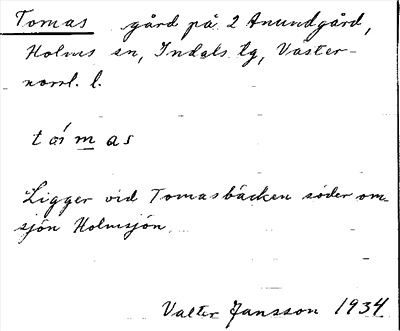 Tomas gård på 2 Anundgård,
Holms sn, Indals tg, Väster-
norrl. l.
tòmas
Ligger vid Tomasbäcken söder om
sjön Holmsjön.
Valter Jansson 1934